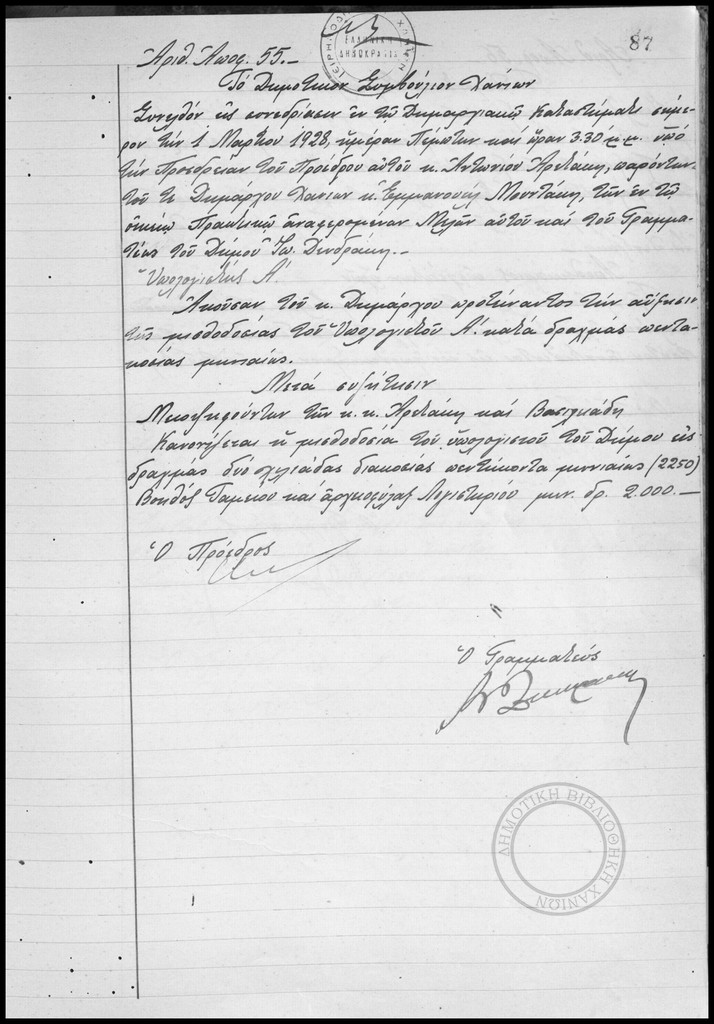 87
ΕΛΛΗΝΙΚΗ
ΔΗΜΟΚΡΑΤΙΑ
Ἀριθ. Ἀποφ. 55.-
Τό Δημοτικόν Συμβούλιον Χανίων
Συνελθόν εἰς συνεδρίασιν ἐν τῷ Δημαρχιακῷ Καταστήματι σήμε-
ρον τήν 1 Μαρτίου 1928, ἡμέραν Πέμπτην καί ὥραν 3.30' μ.μ. ὑπό
τήν Προεδρείαν τοῦ Προέδρου αὐτοῦ κ. Ἀντωνίου Ἀρετάκη, παρόντων
τοῦ τε Δημάρχου Χανίων κ. Ἐμμανουήλ Μουντάκη, τῶν ἐν τῷ
οἰκείῳ Πρακτικῷ ἀναφερομένων Μελῶν αὐτοῦ καί τοῦ Γραμμα-
τέως τοῦ Δήμου Ἰω. Δενδράκη.-
Ὑπολογιστής Α΄.
Ἀκοῦσαν τοῦ κ. Δημάρχου προτείναντος τήν αὔξησιν
τῆς μισθοδοσίας τοῦ Ὑπολογιστοῦ Α΄. κατά δραχμάς πεντα-
κοσίας μηνιαίως.
Μετά συζήτησιν
Μειοψηφούντων τῶν κ. κ. Ἀρετάκη καί Βασιλειάδη
Κανονίζεται ἡ μισθοδοσία τοῦ ὑπολογιστοῦ τοῦ Δήμου εἰς
δραχμάς δύο χιλιάδας διακοσίας πεντήκοντα μηνιαίως (2250)
Βοηθός Ταμείου καί ἀρχειοφύλαξ Λογιστηρίου μην. δρ. 2.000.-
Ὁ Πρόεδρος
Ὁ Γραμματεύς
ΔΗΜΟΤΙΚΗ ΒΙΒΛΙΟΘΗΚΗ ΧΑΝΙΩΝ